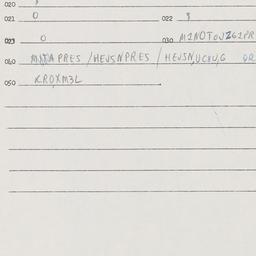 020
021 0 022 9
023 0 030 M1NOTOVZ61PR
040 MNTAPRES / HEVSNPRES / HEVSN,UCHU,G
050 KROXM3L